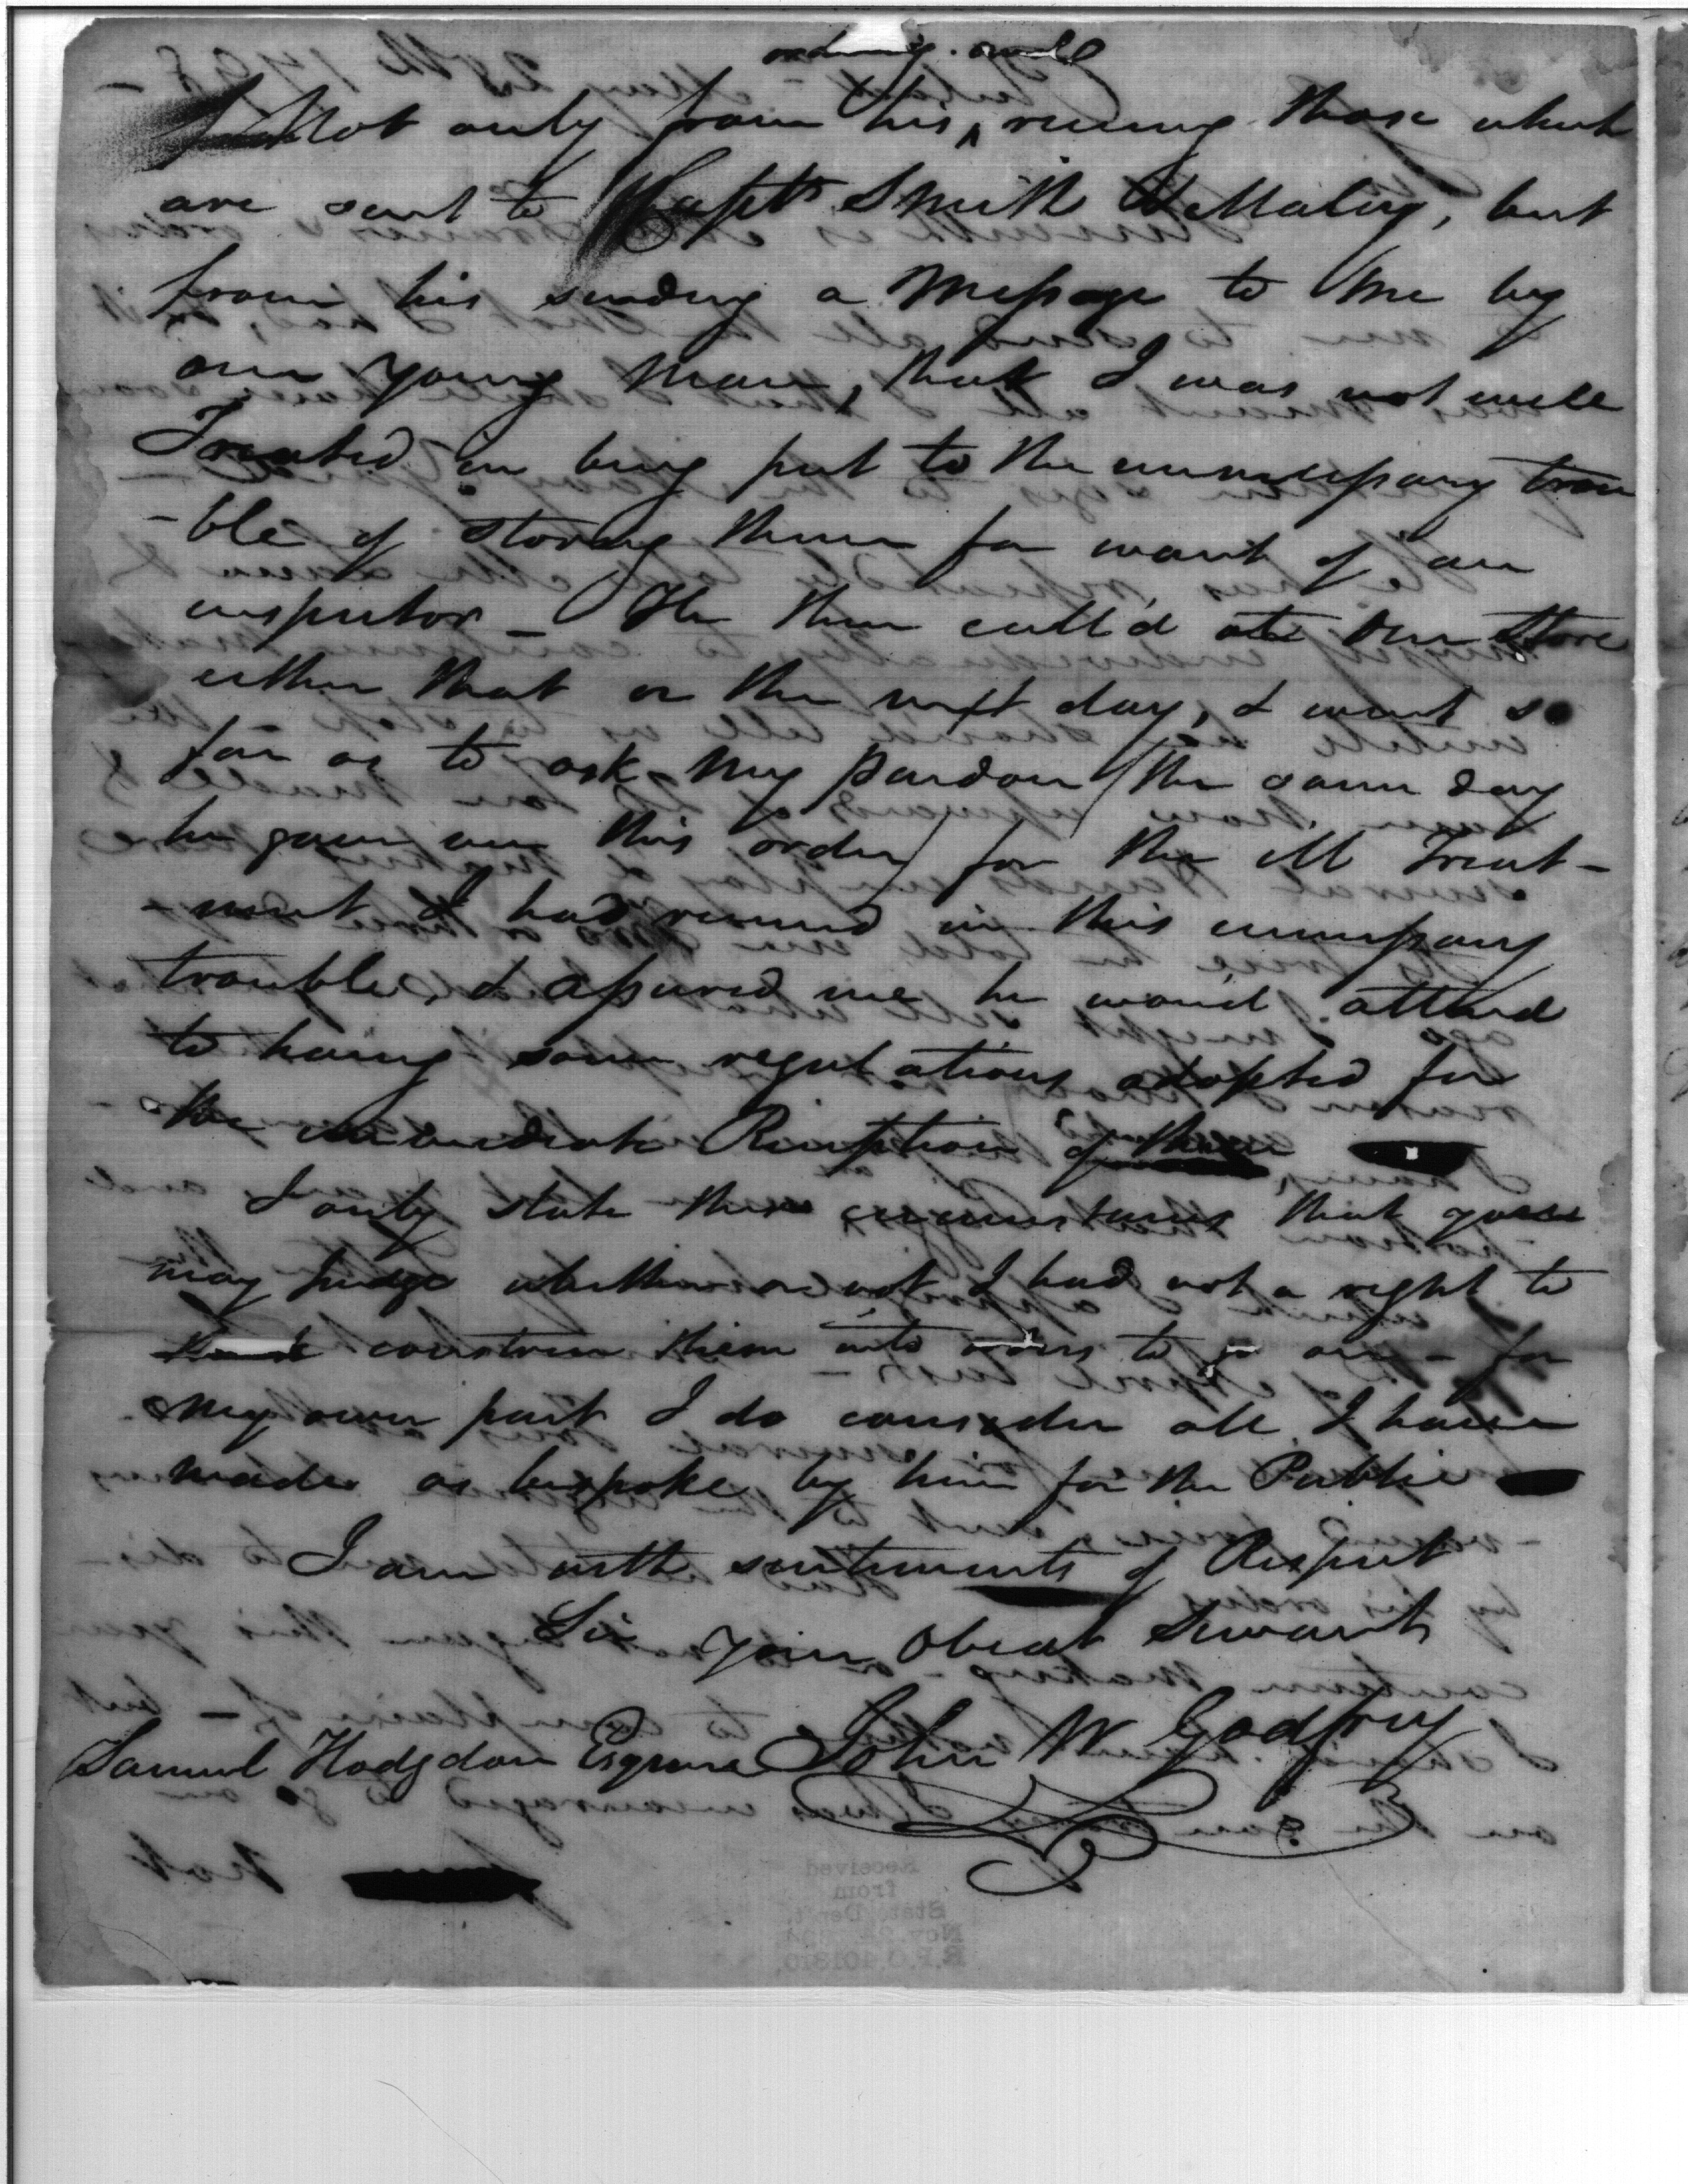 ordering and
Not only from his ^ recieving those which
are sent to Capt Smith Malling, but
from his sending a Message to me by
our young man, that I was not well
Treated in being put to the unnecessary trou
-ble of storing them for want of an
inspector - He then call'd at our Store
either that or the next day, & went so
far as to ask my pardon (the same day
he gave me this order) for the ill Treat-
-ment I had received in this unnecessary
trouble, & assured me he wou'd attend
to having some regulations adopted for
the immediate Reception of them
I only state these circumstances that you
may judge whether or not I had not a right to
construe them into orders to go on - for
my own part I do consider all I have
made as bespoke by him for the Public
I am with sentiments of Respect
Sir your Obedt Servant
John W Godfrey
Samuel Hodgdon Esquire